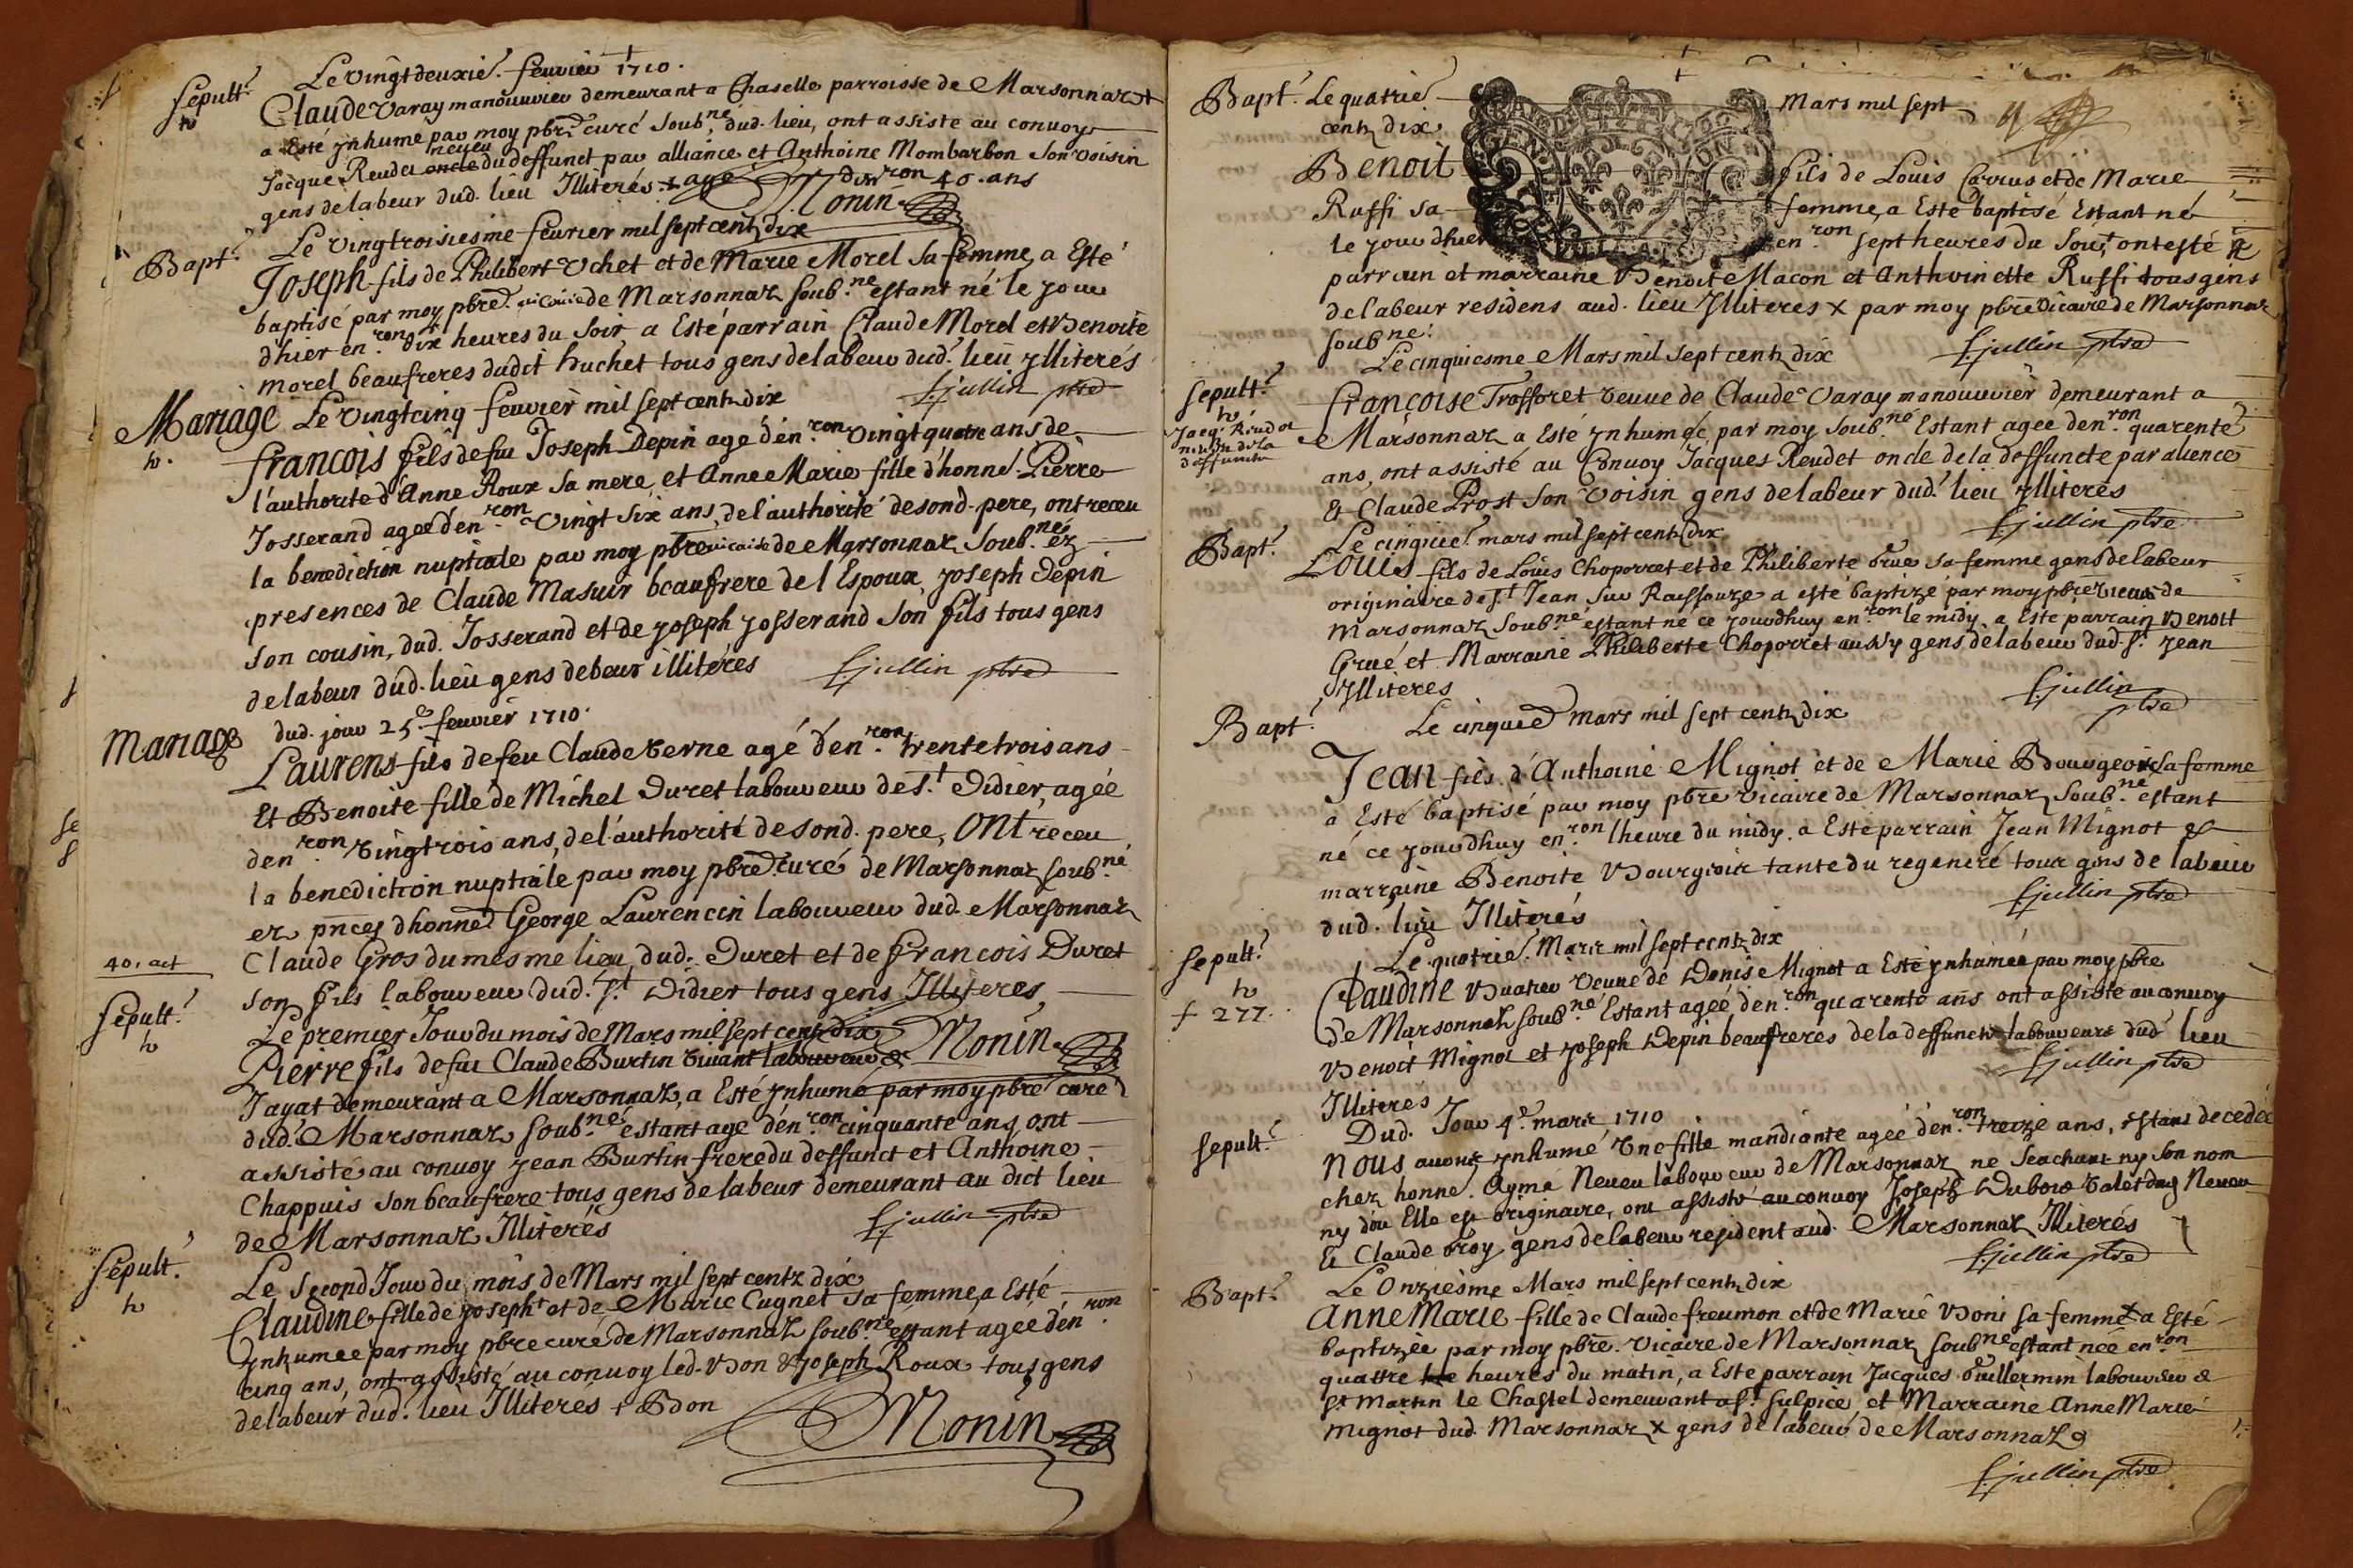 Le vingtdeuxie. feuvier 1710.
Sepult.
Claude Varay manouuvier demeurant a Chaselle parroisse de Marsonnaz
a Esté ynhumé par moy pbre. curé Soub.né dud. lieu, ont assiste au convoy
Jacque Reudet oncle neveu du deffunct par alliance et Anthoine Mombarbon Son voisin
gens delabeur dud. lieu Illiterés + agé d'en ron 40. ans
Monin
Bapt.
Le vingtroisiesme feurier mil sept centz dix
Joseph fils de Philibert Vchet et de Marie Morel Sa femme, a Esté
baptisé par moy pbre. vicaire de Marsonnaz soub.né estant né le jour
dhier en.ron dix heures du Soir, a Esté parrain Claude Morel et Benoite
morel beaufreres dudct huchet tous gens delabeur dud. lieu ylliterés
f. jullin ptre
Mariage
Le vingtcinq feuvier mil sept centz dix
françois fils de feu Joseph Depin agé d'en.ron vingt quatre ans de
l'authorité d'Anne Roux Sa mere, et Anne Marie fille d'honne. Pierre
Josserand agee d'en.ron vingt Six ans, de l'authorité de sond. pere, ont receu
la benediction nuptiale par moy pbre vicaire de Marsonnaz Soub.né ez
presences de Claude Masuir beaufrere de l Espoux, joseph Depin
Son cousin, dud. Josserand et de joseph josserand Son fils tous gens
delabeur dud. lieu gens debeur illitéres
f. jullin ptre
Mariage
dud. jour 25e. feuvier 1710.
Laurens fils de feu Claude Verne agé d'en.ron trente trois ans
Et Benoite fille de Michel Duret laboureur de S.t Didier, agée
den.ron vingtrois ans, de l'authorité de sond. pere, Ont receu
la benediction nuptiale par moy pbre. curé de Marsonnaz soub.né
ez pnces dhonne. George Laurencin laboureur dud. Marsonnaz
Claude Gros du mesme lieu, dud. Duret et de François Duret
40. act
Son fils laboureur dud. S.t Didier tous gens Illiteres
Monin
Sepult.
Le premier Jour du mois de Mars mil Sept centz dix
Pierre fils de feu Claude Burtin vivant laboureur de
Jayat demeurant a Marsonnaz, a Esté ynhumé par moy pbre curé
dud. Marsonnaz soub.né estant agé d'en.ron cinquante ans, ont
assisté au convoy jean Burtin frere du deffunct et Anthoine
Chappuis Son beaufrere tous gens de labeur demeurant au dict lieu
de Marsonnaz Illiterés
f. jullin ptre
Sepult.
Le Second Jour du mois de Mars mil Sept centz dix
Claudine fille de joseph + et de Marie Cugnet Sa femme, a Esté
ynhumee par moy pbre curé de Marsonnaz soub.né estant agee d'en.ron
cinq ans, ont assisté au convoy led. Bon & joseph Roux tous gens
delabeur dud. lieu Illiterés + Bon
Monin
Bapt.
Le quatrie. Mars mil sept
centz dix
Benoit fils de Louis Carrus et de Marie
Ruffi sa femme, a Esté baptisé Estant né
le jour dhier en.ron sept heures du Soir, ont esté
parrain et marraine Benoit Macon et Anthoinette Ruffi tous gens
delabeur residens aud. lieu Illiteres x par moy pbre vicaire de Marsonnaz
Soub né.
f. jullin ptre
Le cinquiesme Mars mil Sept centz dix
Sepult.
Jacq. Reudet
neveu de la
deffuncte
françoise Trofforet veuve de Claude Varay manouuvier demeurant a
Marsonnaz a Esté ynhumée par moy Soub.né Estant agee d'en.ron quarente
ans, ont assisté au Convoy Jacques Reudet oncle de la deffuncte par alience
& Claude Prost Son voisin gens delabeur dud. lieu ylliterés
f. jullin ptre
Bapt.
Le cinquie. mars mil sept centz dix
Louis fils de Louis Choporret et de Philiberte Grue sa femme gens delabeur
originaire de S.t Jean Sur Raissouze a esté baptizé par moy pbre vicaire de
Marsonnaz Soub.né estant né ce jourdhuy en.ron le midy, a Esté parrain Benoit
Grué et Marraine Philiberte Choporret aussy gens delabeur dud. S.t jean
ylliteres
f. jullin ptre
Bapt.
Le cinquie. mars mil sept centz dix
Jean fils d'Anthoine Mignot et de Marie Bourgeois Sa femme
a Esté baptisé par moy pbre vicaire de Marsonnaz Soub.né estant
né ce jourdhuy en.ron lheure du midy. a Esté parrain Jean Mignot &
marraine Benoite Bourgeois tante du regeneré tous gens de labeur
dud. lieu Illiterés
f. jullin ptre
Sepult.
f 277.
Le quatrie. Mars mil sept centz dix
Claudine Buatier veuve de Denis Mignot a Esté ynhumée par moy pbre
de Marsonnaz soub.né Estant agée d'en.ron quarente ans ont assisté au convoy
Benoit Mignot et joseph Depin beaufreres de la deffuncte laboureurs dud. lieu
Illiterés
f. jullin ptre
Sepult.
Dud. Jour 4e. mars 1710
Nous avons ynhumé une fille mandiante agée d'en.ron treize ans, estant decedée
chez honne. Aymé Neveu laboureur de Marsonnaz ne Scachant ny Son nom
ny d'ou Elle est originaire, ont assisté au convoy Joseph Dubois valet dud Neveu
& Claude Froy gens delabeur resident aud. Marsonnaz Illiterés
f. jullin ptre
Bapt.
Le Onziesme Mars mil sept centz dix
Anne Marie fille de Claude freumon et de Marie Boni sa femme a Esté
baptizée par moy pbre. vicaire de Marsonnaz soub né estant née en.ron
quattre heures du matin, a Esté parrain Jacques Guillermin laboureur de
St Martin le Chastel demeurant a S.t Sulpice, et Marraine Anne Marie
Mignot dud. Marsonnaz x gens delabeur de Marsonnaz
f. jullin ptre